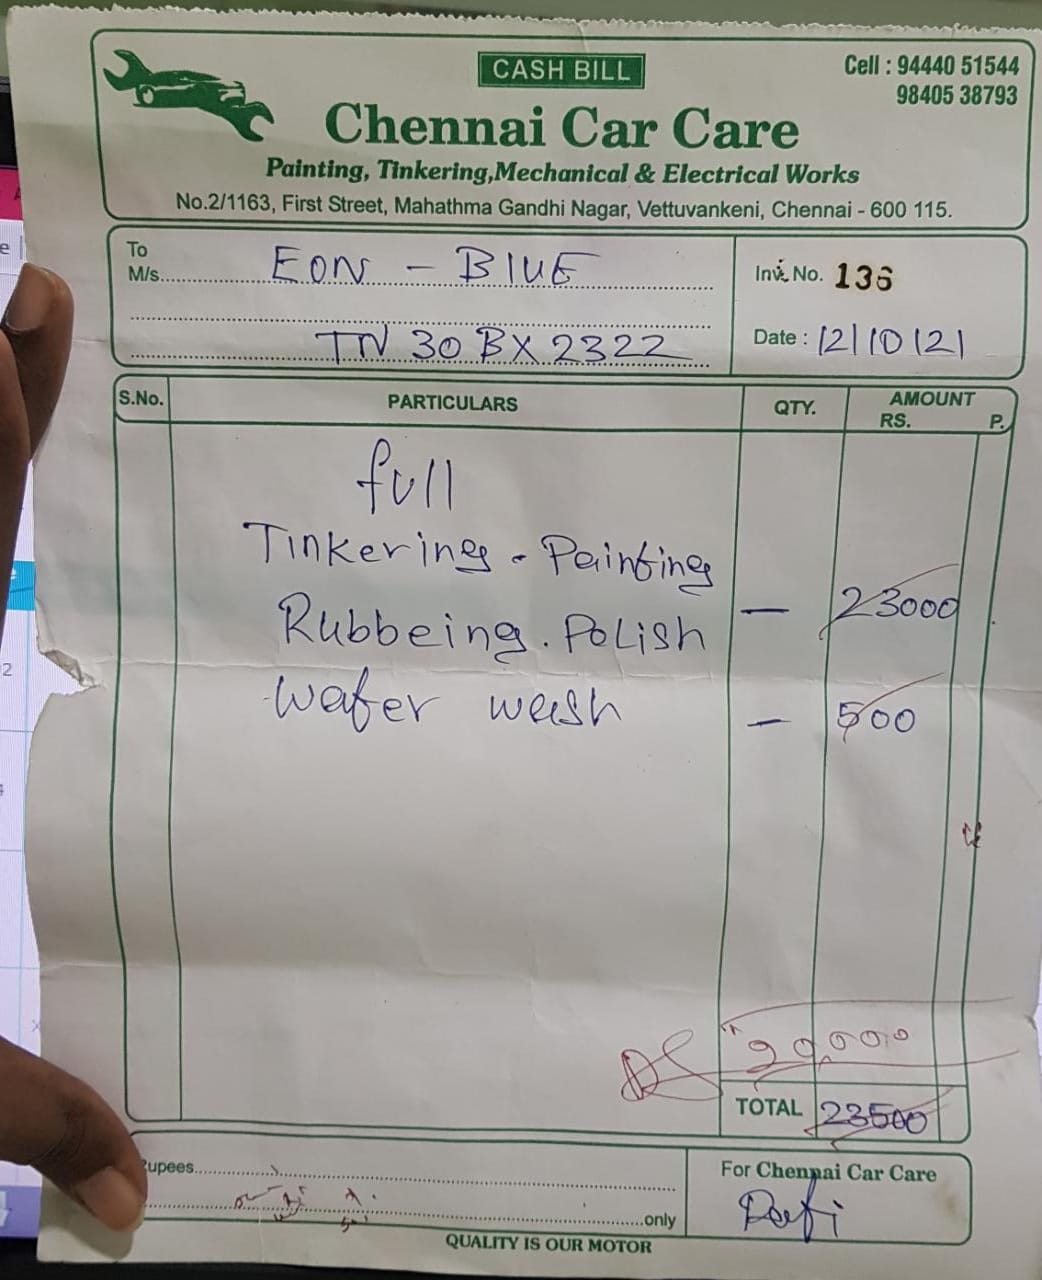 CASH BILL
Cell : 94440 51544
98405 38793
Chennai Car Care
Painting, Tinkering,Mechanical & Electrical Works
No.2/1163, First Street, Mahathma Gandhi Nagar, Vettuvankeni, Chennai - 600 115.
To
M/s. EON - BlUE
TN 30 BX 2322
Inv. No. 136
Date : 12/10/21
S.No. PARTICULARS QTY. AMOUNT RS. P.
full
Tinkering - Painting
Rubbeing. Polish — 23000
water wash — 500
20,000
TOTAL 23500
upees
only
For Chennai Car Care
Rafi
QUALITY IS OUR MOTOR